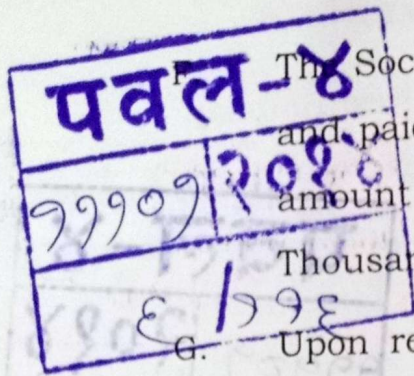 पवल-४
१११०१ २०१४
६/११६
The Soc
and paid
amount
Thousan
G. Upon re